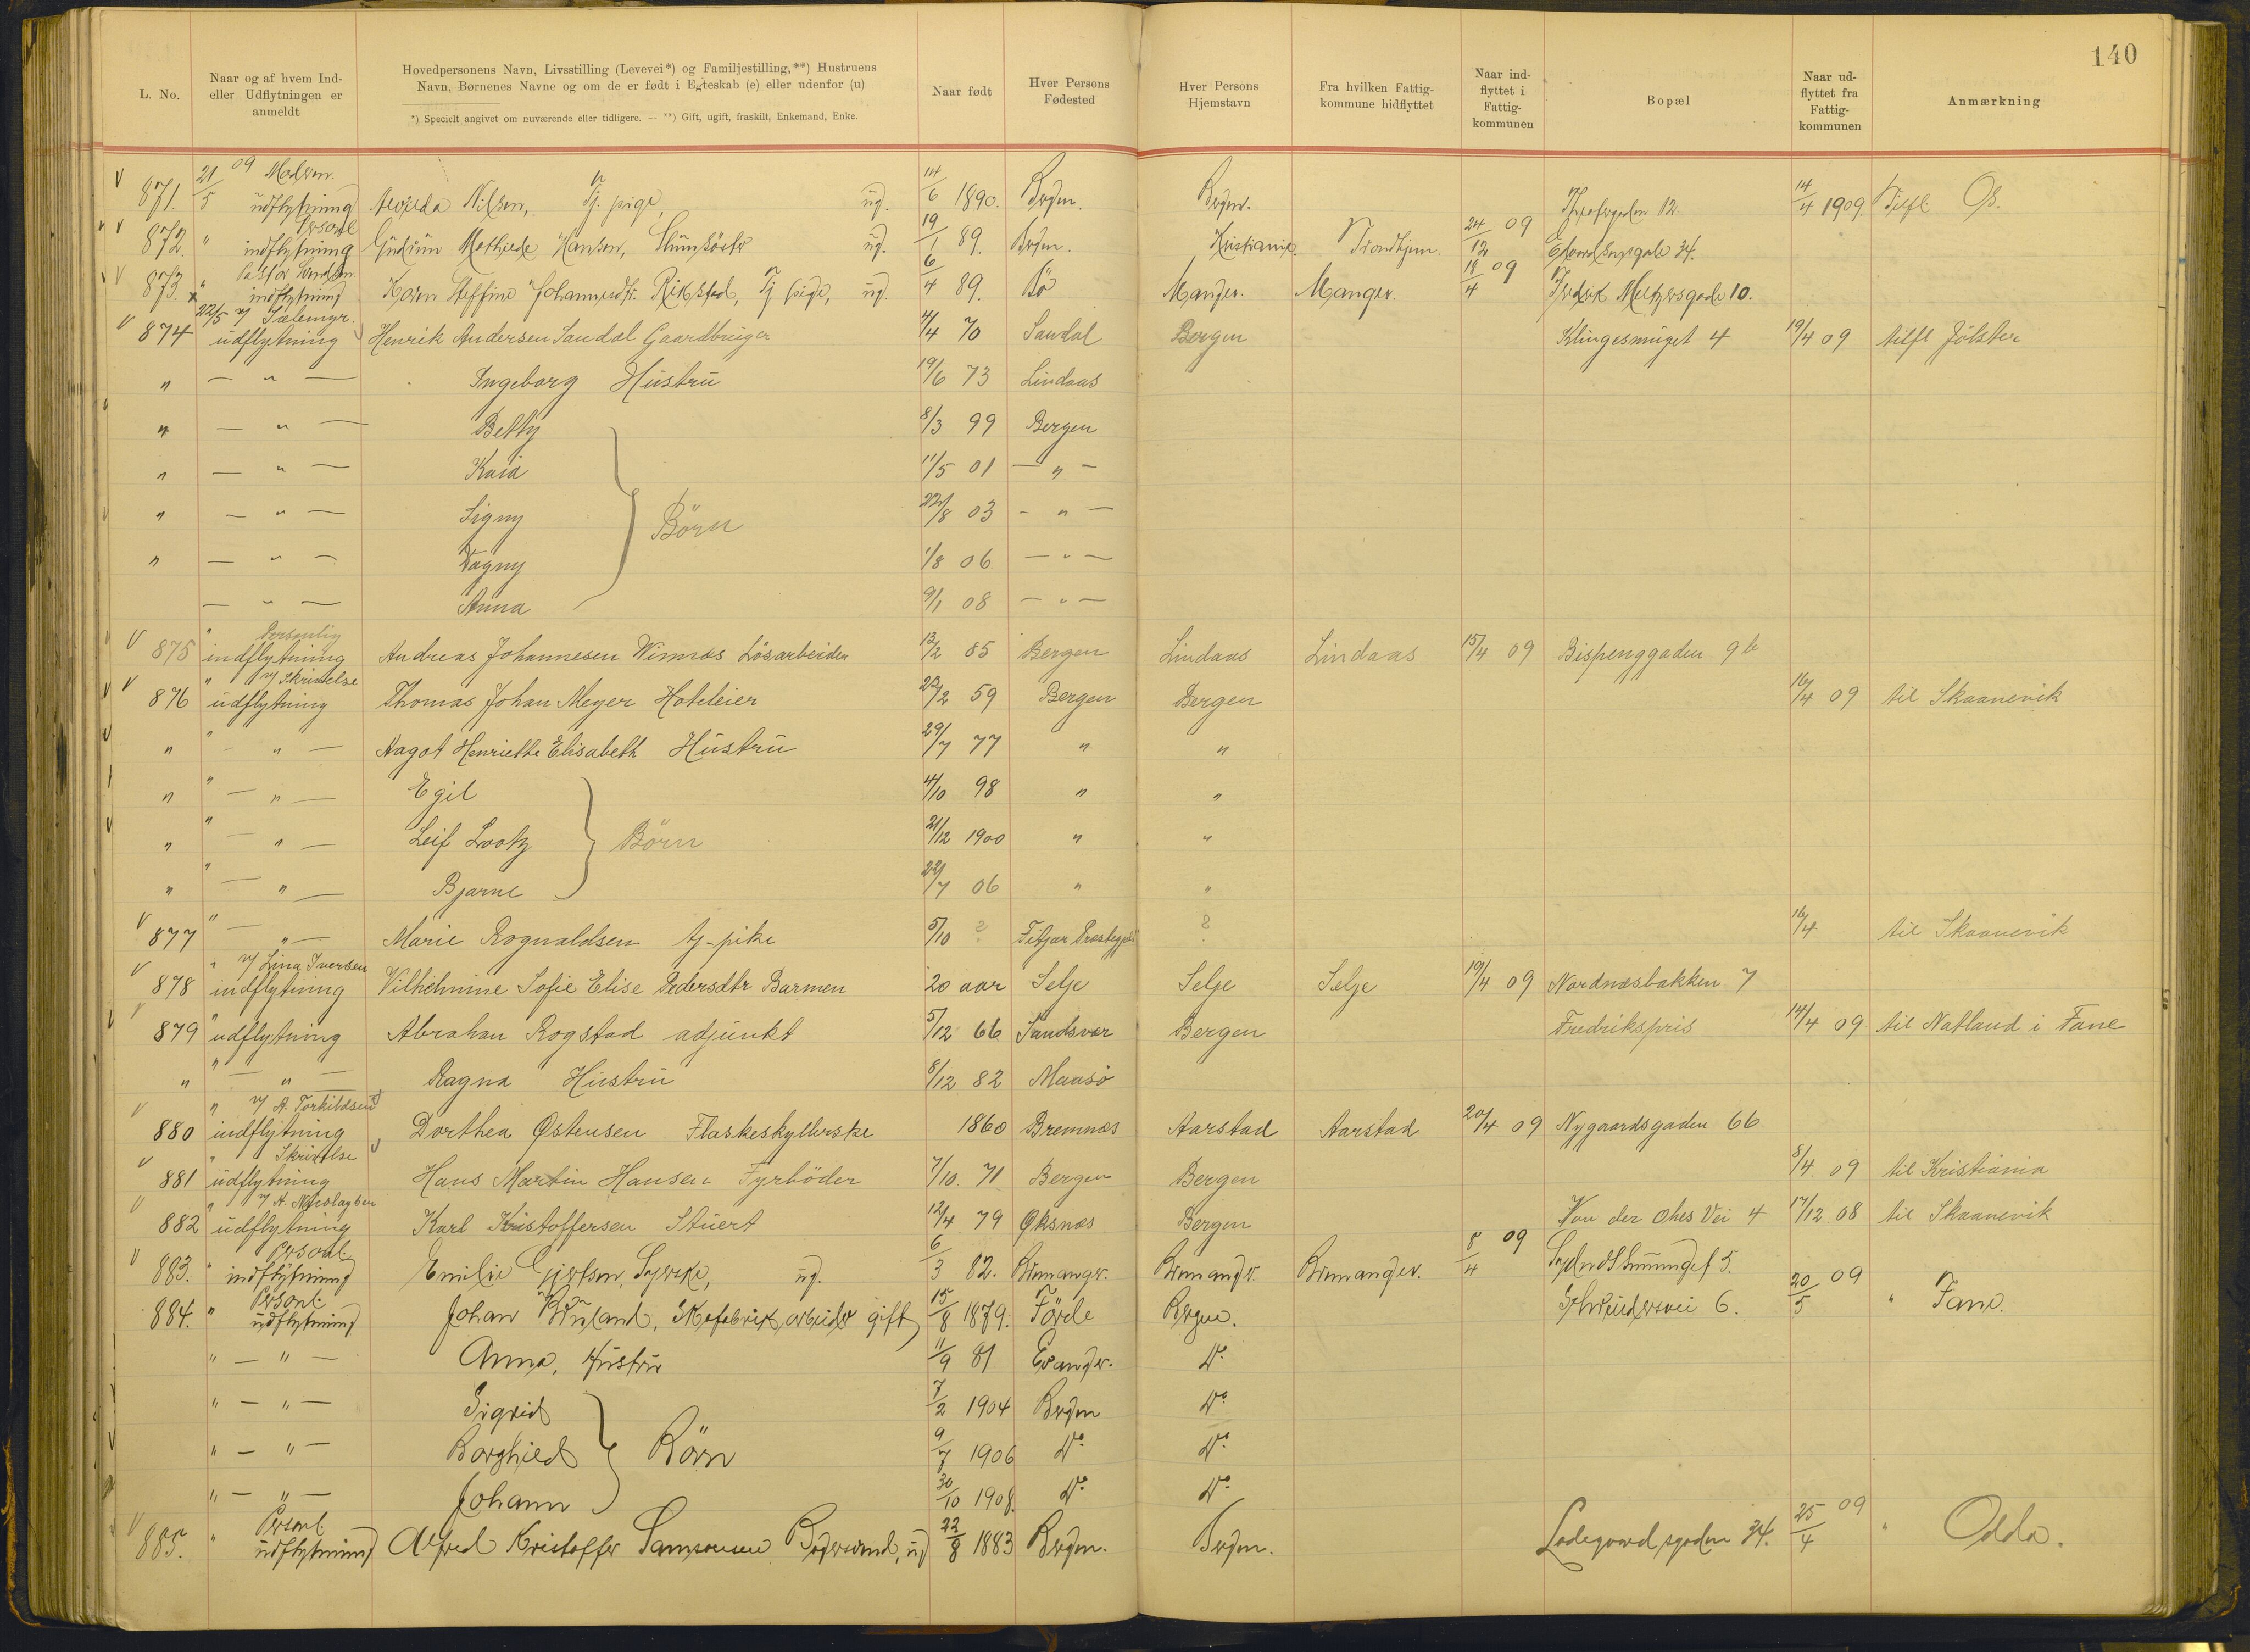 140
L. No.
Naar og af hvem Ind-
eller Udflytningen er
anmeldt
Hovedpersonens Navn, Livsstilling (Levevei*) og Familjestilling,**) Hustruens
Navn, Børnenes Navne og om de er født i Egteskab (e) eller udenfor (u)
*) Specielt angivet om nuværende eller tidligere. — **) Gift, ugift, fraskilt, Enkemand, Enke.
Naar født
Hver Persons
Fødested
Hver Persons
Hjemstavn
Fra hvilken Fattig-
kommune hidflyttet
Naar ind-
flyttet i
Fattig-
kommunen
Bopæl
Naar ud-
flyttet fra
Fattig-
kommunen
Anmærkning
871. 21/5 09 udflytning Nilsen, Tj. pige, ug. 14/6 1890. Bergen. Bergen. 12 14/4 1909. Tilfl Os.
872. " Personl indflytning Gudrun Mathilde Hansen, ug. 19/1 89. Bergen. Kristiania. Trondhjem. 24/12 09 34.
873. " Pastor indflytning Karen Steffine Johannesdtr. Rikstad, Tj pige, ug. 6/4 89. Bö Manger. Manger. 18/4 09 Fredrik Meltzersgade 10.
874 22/5 v/ Sælemyr. udflytning Henrik Andersen Sandal Gaardbruger 4/4 70 Sandal Bergen Klingesmuget 4 19/4 09 tilfl Jølster
" — " — Ingeborg Hustru 19/6 73 Lindaas
" — " — Betty 8/3 99 Bergen
" — " — Kaia 11/5 01 — " —
" — " — Signy Börn 22/8 03 — " —
" — " — Dagny 1/8 06 — " —
— " — Anna 9/1 08 — " —
875 " Personlig indflytning Andreas Johannesen Winnæs Løsarbeider 13/2 85 Bergen Lindaas Lindaas 15/4 09 Bispenggaden 9b
876 " v/ Skrivelse udflytning Thomas Johan Meyer Hoteleier 22/2 59 Bergen Bergen 16/4 09 til Skaanevik
" " — " — Aagot Henriette Elisabeth Hustru 29/7 77 " "
" " — " — Egil 4/10 98 " "
" " — " — Leif Lootz Börn 21/12 1900 " "
" " — " — Bjarne 22/7 06 " "
877 " — " — Marie Rognaldsen tj-pike 5/10 ? Fitjar Præstegjeld ? 16/4 til Skaanevik
878 " v/ Lina Iversen indflytning Vilhelmine Sofie Elise Pedersdtr Barmen 20 aar Selje Selje Selje 19/4 09 Nordnæsbakken 7
879 " udflytning Abraham Rogstad adjunkt 5/12 66 Sandsvær Bergen Fredrikspris 14/4 09 til Natland i Fane
" " — " — Ragna Hustru 8/12 82 Maasø
880 " v/ A. Torkildsen indflytning Dorthea Østensen Flaskeskyllerske 1860 Bremnæs Aarstad Aarstad 20/4 09 Nygaardsgaden 66
881 " Skrivelse udflytning Hans Martin Hansen Fyrböder 7/10. 71 Bergen Bergen 8/4 09 til Kristiania
882 " v/ A. udflytning Karl Kristoffersen Stuert 12/4 79 Øksnæs Bergen Von der Ohes Vei 4 17/12 08 til Skaanevik
883. " Personl. indflytning Emilie Gjertsen, Syerske, ug. 6/3 82. Bremanger. Bremanger. Bremanger. 8/4 09 5.
884. " Personl. udflytning Johan arbeider gift 15/8 1879. Förde Bergen. 6. 20/5 09 " Fane.
" — " — Anna, Hustru 11/9 81 Evanger. Do
" — " — Sigrid 7/2 1904 Bergen Do
" — " — Borghild Börn 9/7 1906 Do Do
" — " — Johann 30/10 1908. Do Do
885. " Personl udflytning Alfred Kristoffer Samsonsen ug 22/8 1883 Bergen. Bergen. Ladegaardsgaden 34. 25/4 09 " Odda.